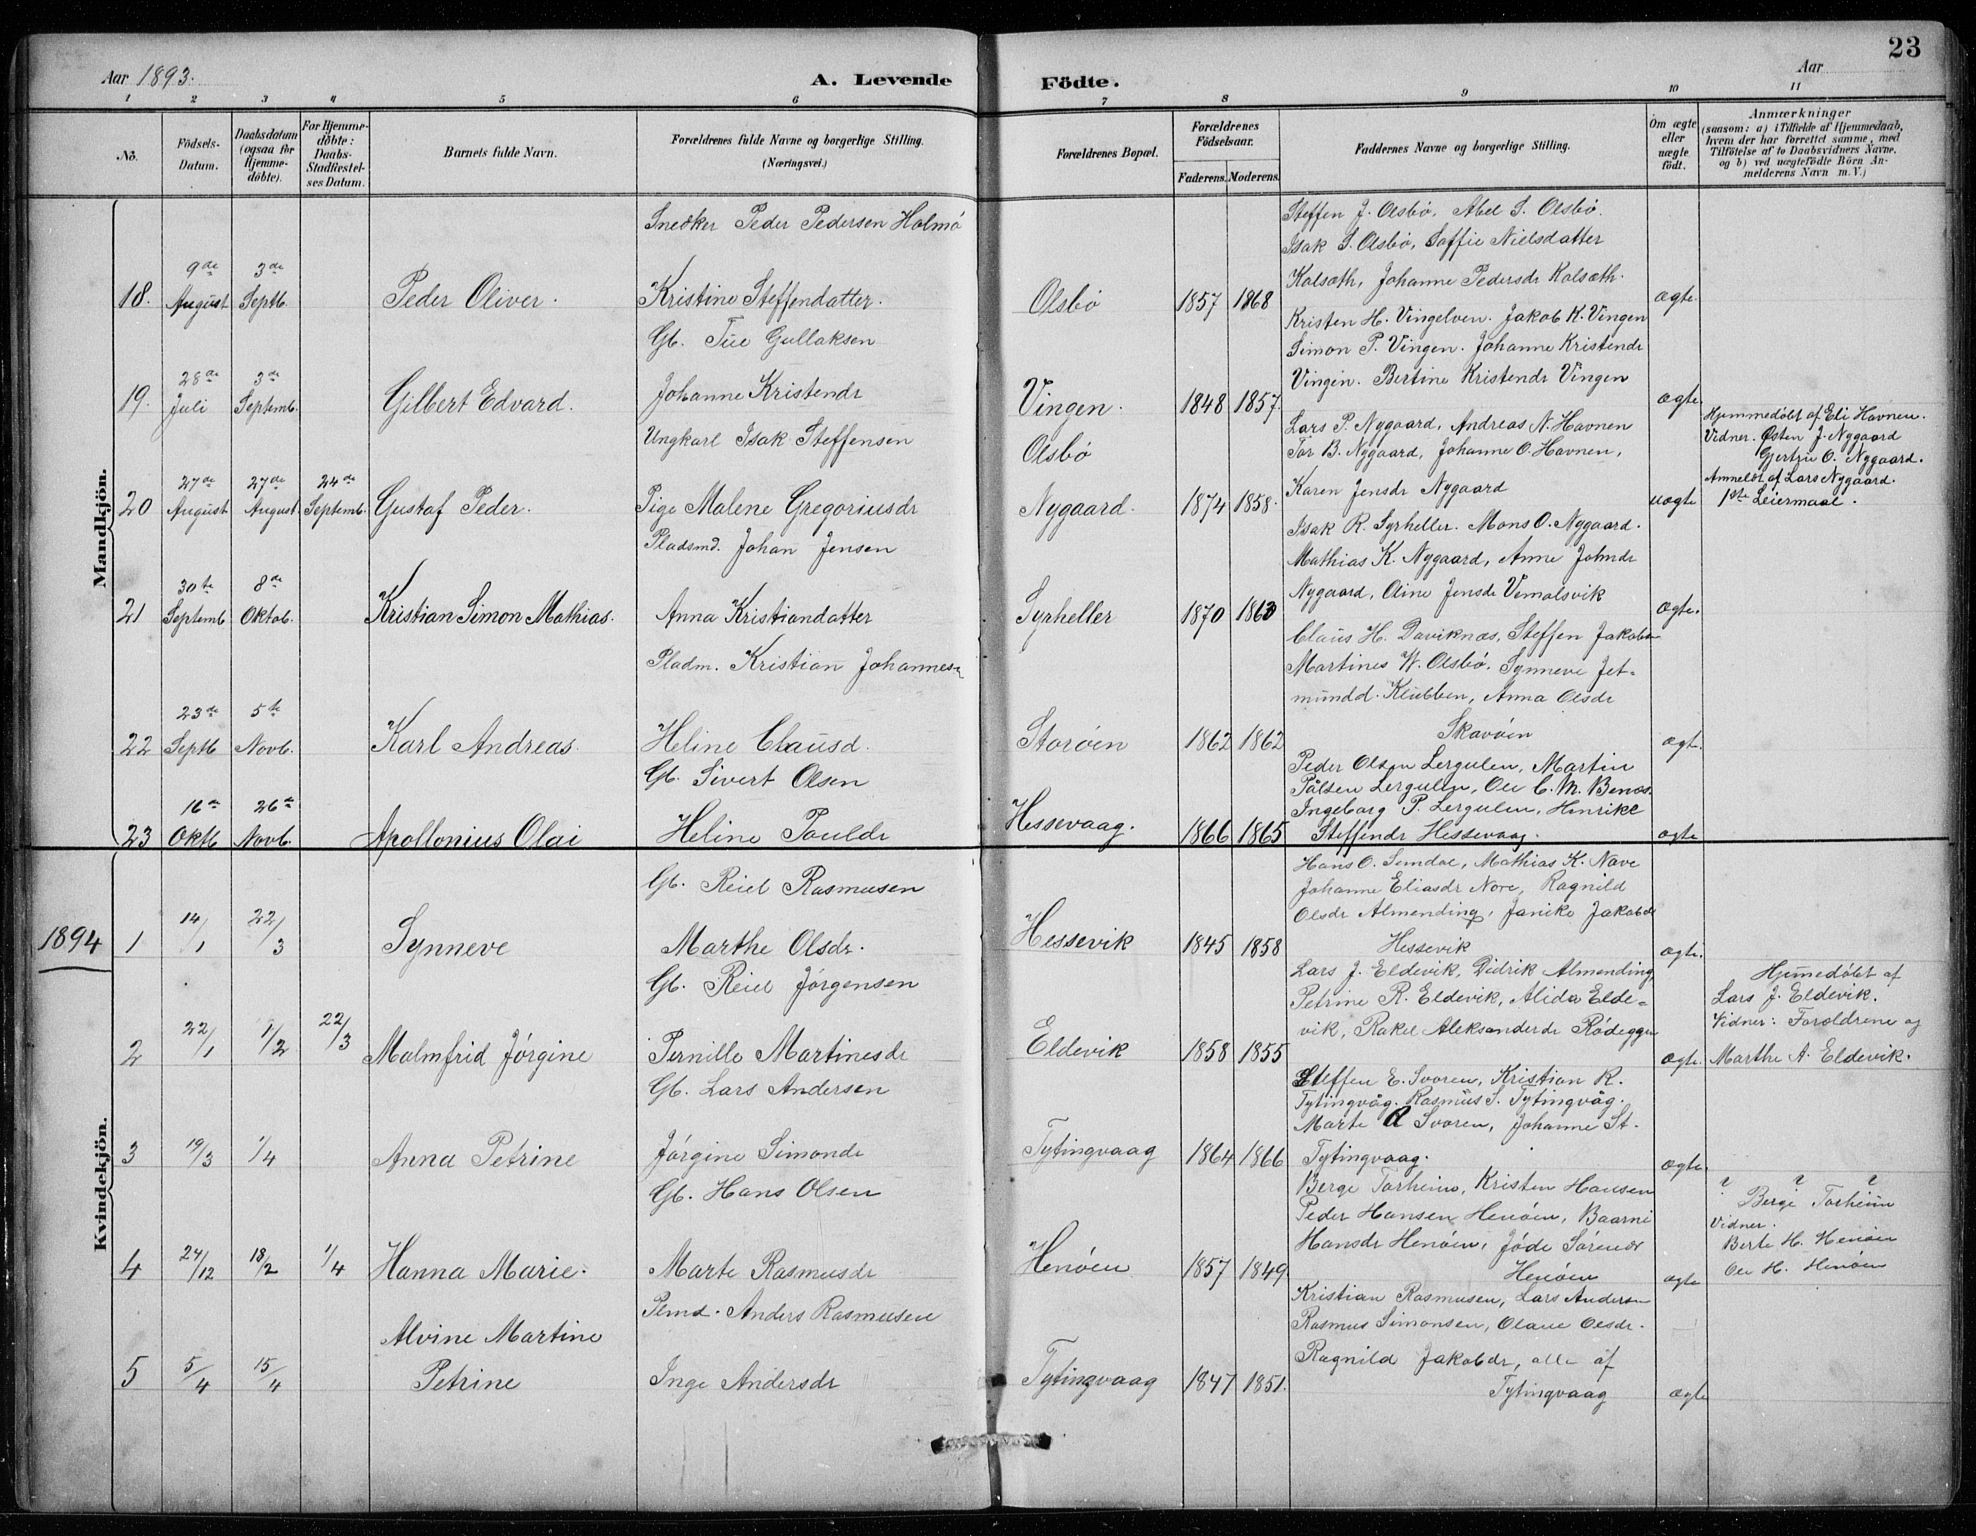 23
Aar 1893.
A. Levende Födte.
Aar
1 2 3 4 5 6 7 8 9 10 11
No.
Födsels-Datum.
Daabsdatum (ogsaa för Hjemme-döbte).
For Hjemme-döbte: Daabs-Stadfæstel-ses Datum.
Barnets fulde Navn.
Forældrenes fulde Navne og borgerlige Stilling. (Næringsvei.)
Forældrenes Bopæl.
Forældrenes Födselsaar.
Faderens. Moderens.
Faddernes Navne og borgerlige Stilling.
Om ægte eller uægte födt.
Anmærkninger
(saasom: a) i Tilfælde af Hjemmedaab, hvem der har forrettet samme, med Tilföielse af to Daabsvidners Navne, og b) ved uægtefödte Börn An-melderens Navn m. V.)
Mandkjön.
Snedker Peder Pedersen Holmö
Steffen J. Olsbö, Abel S. Olsbö.
Isak S. Olsbö, Soffie Nielsdatter
18. 9de August 3de Septb. Peder Oliver. Kristine Steffendatter. Olsbö 1857 1868 Kolsæth, Johanne Pedersdr Kolsæth. ægte.
Gb. Tue Gullaksen
Kristen H. Vingelven. Jakob K. Vingen
Simon P. Vingen. Johanne Kristendr
19. 28de Juli 3de Septemb. Gilbert Edvard. Johanne Kristendr Vingen. 1848 1857. Vingen. Bertine Kristendr Vingen ægte
Ungkarl Isak Steffensen Olsbö
Lars P. Nygaard, Andreas N. Havnen
Tor B. Nygaard, Johanne O. Havnen,
20 27de August 27de August. 24de Septemb. Gustaf Peder. Pige Malene Gregoriusdr Nygaard. 1874 1858. Karen Jensdr Nygaard uægte
Hjemmedöbt af Eli Havnen.
Vidner. Östen J. Nygaard
Gjertru O. Nygaard.
Anmeldt af Lars Nygaard.
1ste Leiermaal.
Pladsmd. Johan Jensen
Isak R. Syrheller. Mons O. Nygaard.
Mathias K. Nygaard, Anne Johndr
21 30te Septemb 8de Oktob. Kristian Simon Mathias. Anna Kristiandatter Syrheller 1870 1863 Nygaard, Oline Jensdr Vemelsvik ægte.
Pladm. Kristian Johannes
Claus H. Daviknæs, Steffen Jakobs
Martines W. Olsbö. Synneve Jet-
mundd. Klubben, Anna Olsdr
22 23de Septb 5te Novb. Karl Andreas. Heline Clausd. Storöen 1862 1862 Skavöen ægte.
Gb. Sivert Olsen
Peder Olsen Lergulen, Martin
Pålsen Lergulen, Ole C. M. Benæs.
Ingeborg P. Lergulen, Henrike
23 16de Oktb 26de Novb. Apollonius Olai Heline Pauldr Hessevaag. 1866 1865 Steffendr Hessevaag. ægte
1894
Kvindekjön.
Gb. Reiel Rasmusen
Hans O. Semdal, Mathias K. Nave
Johanne Eliasdr Nore, Ragnild
Olsdr Almending, Janike Jakobdr
1 14/1 22/3 Synneve Marthe Olsdr. Hessevik 1845 1858 Hessevik ægte.
Gb. Reiel Jörgensen
Lars J. Eldevik, Didrik Almending
Petrine R. Eldevik, Alida Elde-
vik, Rakel Aleksanderdr Rödeggen
2 22/1 1/2 22/3 Malmfrid Jörgine Pernille Martinesdr Eldevik 1858 1855 ægte.
Hjemedöbt af
Lars J. Eldevik.
Vidner: Foreldrene og
Marthe A. Eldevik.
Gb. Lars Andersen
Steffen E. Svoren, Kristian R.
Tytingvåg. Rasmus S. Tytingvåg.
Marte A Svoren, Johanne St.
3 19/3 1/4 Anna Petrine Jörgine Simondr Tytingvaag 1864 1866 Tytingvaag. ægte.
Gb. Hans Olsen
Berge Torheim, Kristen Hansen
Peder Hansen Henöen, Baarni
Hansdr Henöen, Jöde Sörendr
4 24/12 18/2 1/4 Hanna Marie. Marte Rasmusdr Henöen 1857 1849 Henöen ægte
Berge Torheim
Vidner.
Berte H. Henöen
Ole H. Henöen
Plmd. Anders Rasmusen
Kristian Rasmusen, Lars Andersen
Rasmus Simonsen, Olave Olesdr.
5 5/4 15/4 Alvine Martine Petrine Inge Andersdr Tytingvaag 1847 1851. Ragnild Jakobdr, alle af
Tytingvaag ægte